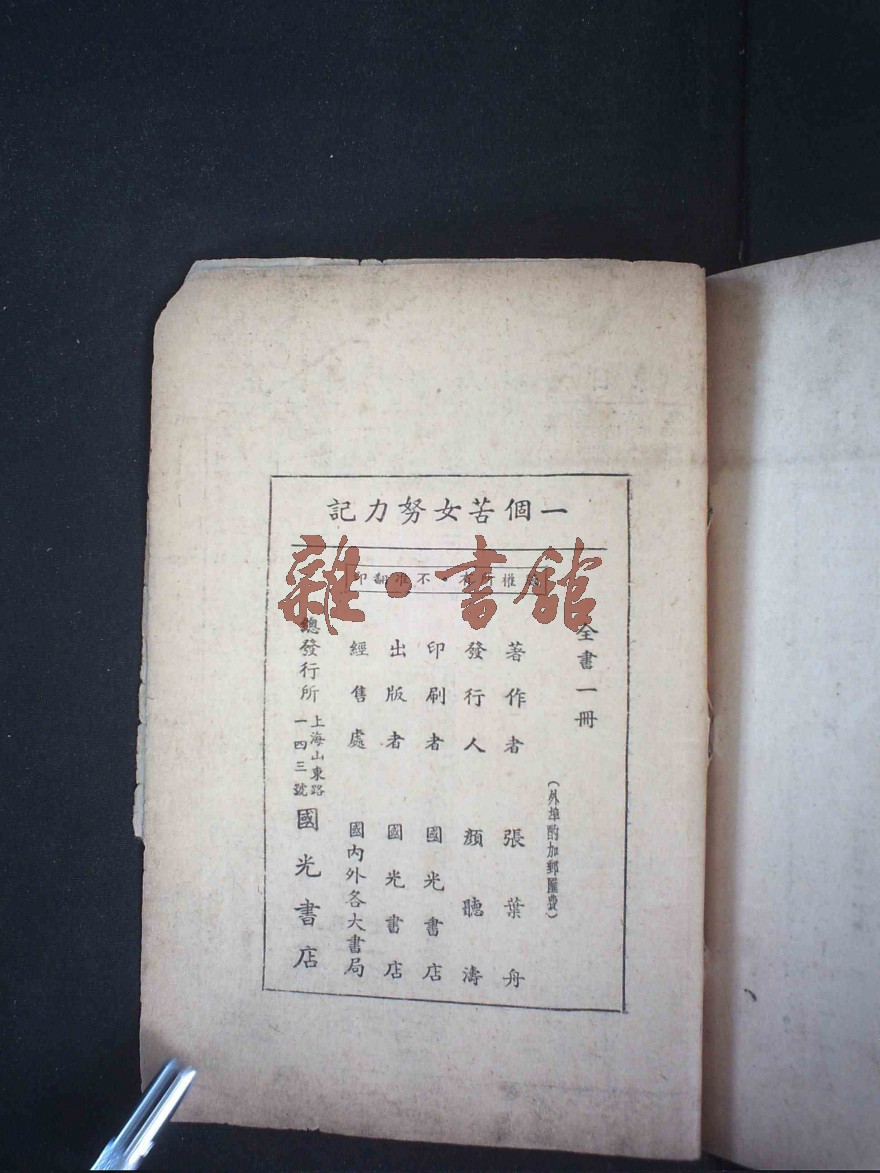 一個苦女努力記
版權所有・不准翻印
雜・書館
全書一冊
（外埠酌加郵匯費）
著作者 張葉舟
發行人 顏聽濤
印刷者 國光書店
出版者 國光書店
經售處 國內外各大書局
總發行所 上海山東路一四三號 國光書店